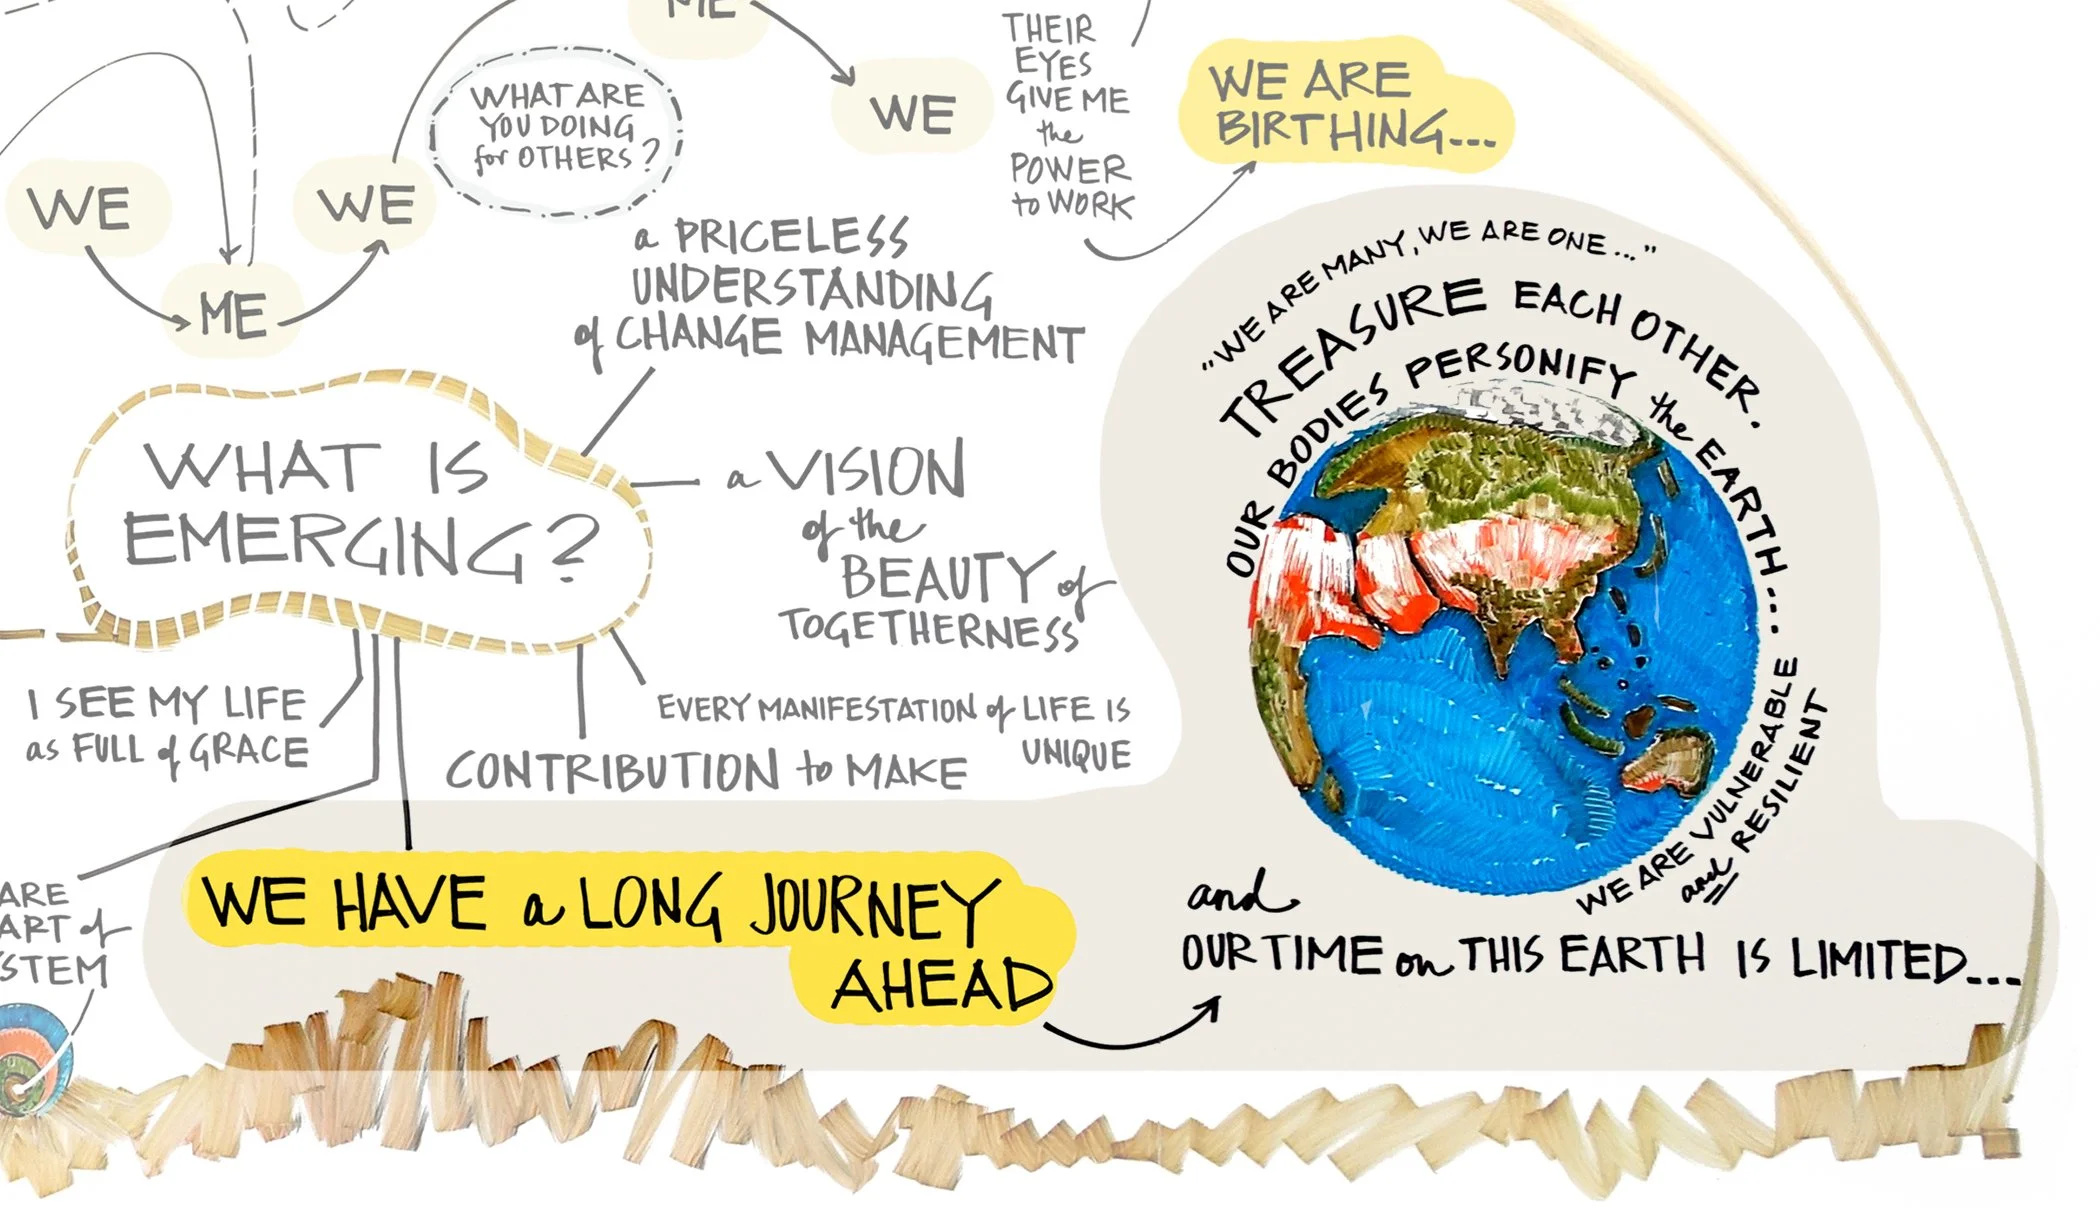 ME
WE
THEIR
EYES
GIVE ME
the
POWER
to WORK
WE ARE
BIRTHING...
WHAT ARE
YOU DOING
for OTHERS?
WE
ME
WE
a PRICELESS
UNDERSTANDING
of CHANGE MANAGEMENT
WHAT IS
EMERGING?
a VISION
of the
BEAUTY of
TOGETHERNESS
EVERY MANIFESTATION of LIFE IS
UNIQUE
CONTRIBUTION to MAKE
I SEE MY LIFE
as FULL of GRACE
ARE
ART of
STEM
WE HAVE a LONG JOURNEY
AHEAD
"WE ARE MANY, WE ARE ONE..."
TREASURE EACH OTHER.
OUR BODIES PERSONIFY the EARTH...
WE ARE VULNERABLE
and RESILIENT
and
OUR TIME on THIS EARTH IS LIMITED...